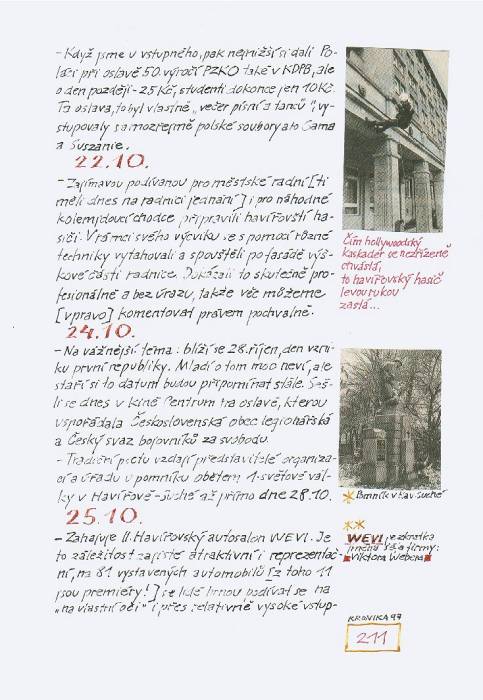 - Když jsme u vstupného, pak nejnižší si dali Po-
láci při oslavě 50. výročí PZKO také v KDPB, ale
o den později - 25 Kč, studenti dokonce jen 10 Kč.
Ta oslava, to byl vlastně „večer písní a tanců", vy-
stupovaly samozřejmě polské soubory a to Gama
a Suszanie.
22.10.
- Zajímavou podívanou pro městské radní [ti
měli dnes na radnici jednání] i pro náhodné
kolemjdoucí chodce připravili havířovští ha-
siči. V rámci svého výcviku se s pomocí různé
techniky vytahovali a spouštěli po fasádě výš-
kové části radnice. Dokázali to skutečně pro-
fesionálně a bez úrazu, takže věc můžeme
[vpravo] komentovat právem pochvalně.
24.10.
- Na vážnější téma: blíží se 28. říjen, den vzni-
ku první republiky. Mladí o tom moc neví, ale
staří si to datum budou připomínat stále. Seš-
li se dnes v kině Centrum na oslavě, kterou
uspořádala Československá obec legionářská
a Český svaz bojovníků za svobodu.
- Tradiční poctu vzdají představitelé organiza-
cí a úřadu u pomníku obětem 1. světové vál-
ky v Havířově-Suché až přímo dne 28.10.
25.10.
- Zahajuje II. Havířovský autosalon WEVI. Je
to záležitost zajisté atraktivní i reprezentač-
ní, na 81 vystavených automobilů [z toho 11
jsou premiéry!] se lidé hrnou podívat se na
„na vlastní oči" i přes relativně vysoké vstup-
Čím hollywoodský
kaskadér se nezřízeně
chvástá,
to havířovský hasič
levou rukou
zastá...
Pomník v Hav.-Suché
WEVI je zkratka
jména šéfa firmy:
Viktora Webera
KRONIKA 97
211